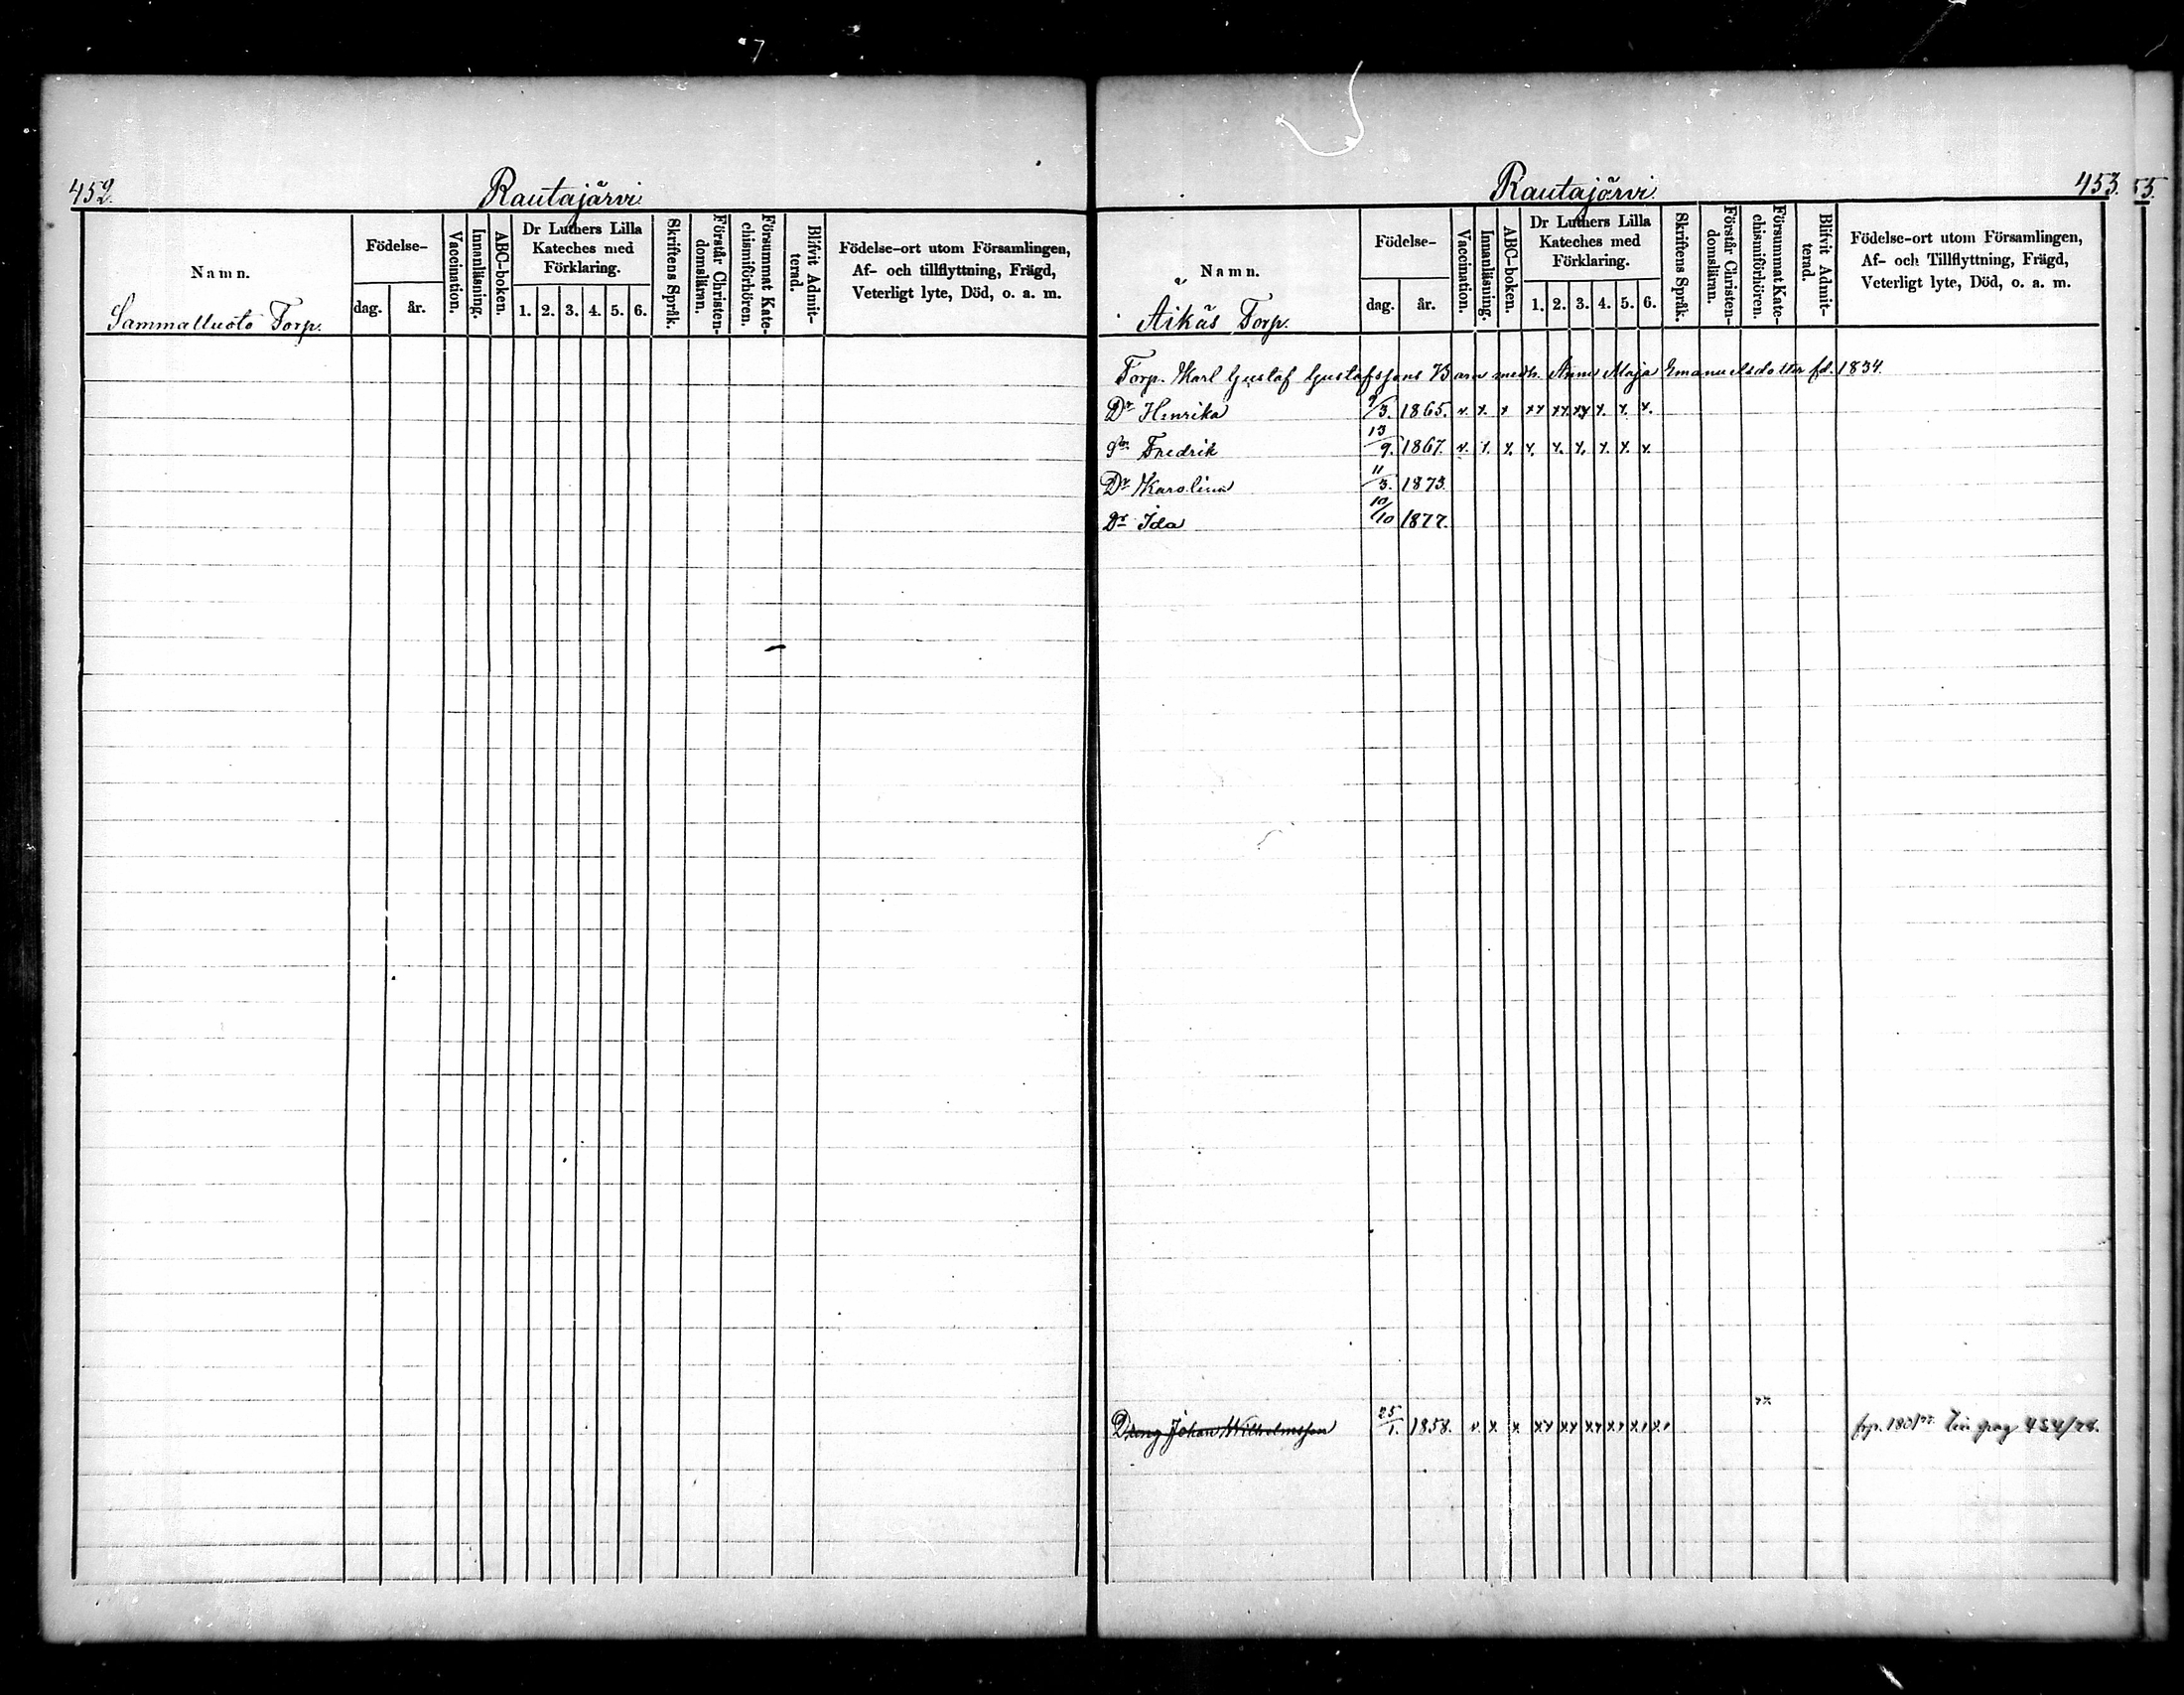 452.
Rautajärvi
Namn.
Födelse-
dag. år.
Vaccination.
Innanläsning.
ABC-boken.
Dr Luthers Lilla
Kateches med
Förklaring.
1. 2. 3. 4. 5. 6.
Skriftens Språk.
Förstår Christen-
domsläran.
Försummat Kate-
chismiförhören.
Blifvit Admit-
terad.
Födelse-ort utom Församlingen,
Af- och tillflyttning, Frägd,
Veterligt lyte, Död, o. a. m.
Sammalluoto Torp.
Rautajärvi
453.
55.
Namn.
Födelse-
dag. år.
Vaccination.
Innanläsning.
ABC-boken.
Dr Luthers Lilla
Kateches med
Förklaring.
1. 2. 3. 4. 5. 6.
Skriftens Språk.
Förstår Christen-
domsläran.
Försummat Kate-
chismiförhören.
Blifvit Admit-
terad.
Födelse-ort utom Församlingen,
Af- och Tillflyttning, Frägd,
Veterligt lyte, Död, o. a. m.
Äikäs Torp.
Torp. Karl Gustaf Gustafssons Barn medh. Anna Maja Emanuelsdotter fd. 1834.
Dr Henrika 9/3. 1865. v. x. x xx xx xx x. x. x.
Sn Fredrik 13/9. 1867. v. x. x. x. x. x. x. x. x.
Dr Karolina 11/3. 1873.
Dr Ida 10/10 1877.
Dreng Johan Wilhelmsson 25/1. 1858. v. x. x xx xx xx xx xx xx 77 454/78.